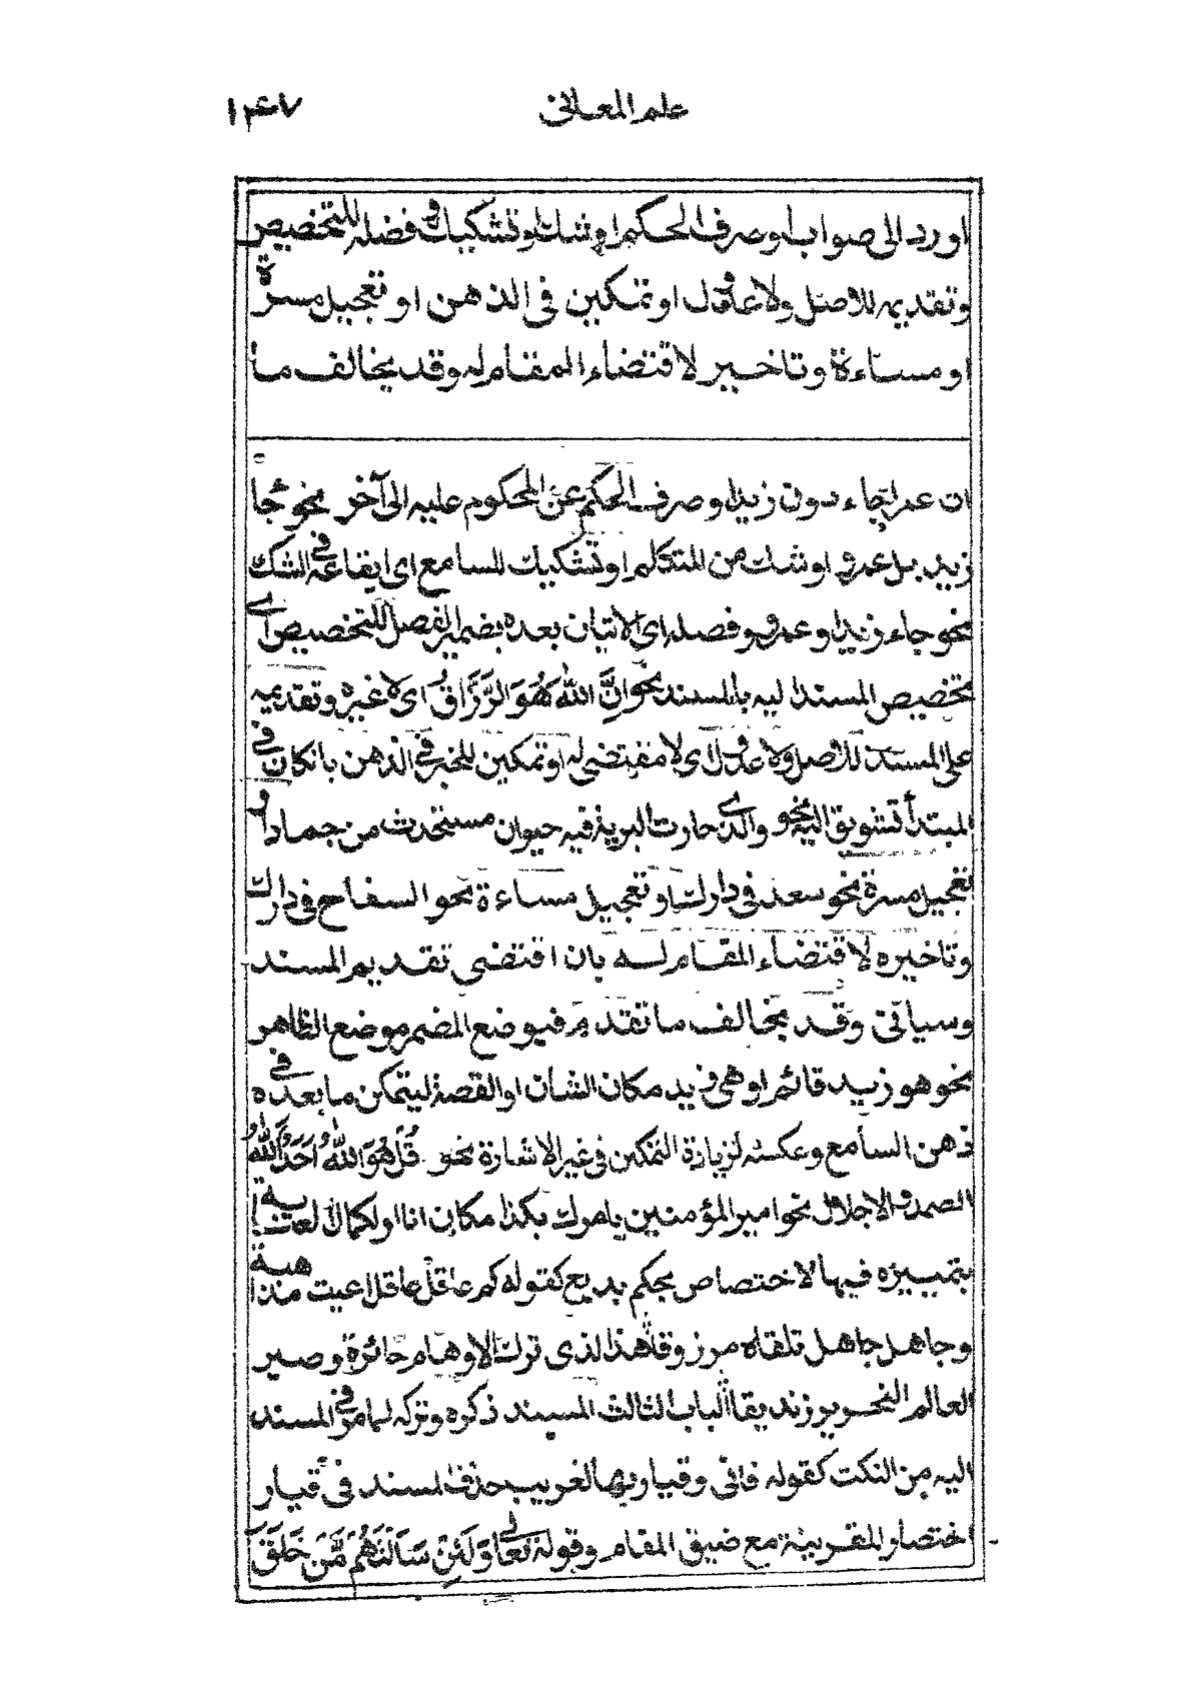 علم المعانى ١٤٧
او رد الى صواب او صرف الحكم او شك او تشكيك و فصله للتخصيص
وتقديمه للاصل ولا عدول او تمكين فى الذهن او تعجيل مسرة
او مساءة وتاخير لاقتضاء المقام له وقد يخالف ما
ان عمرا جاء دون زيد او صرف الحكم عن المحكوم عليه الى آخر نحو جا
زيد بل عمرو او شك من المتكلم او تشكيك للسامع اى ايقاعه فى الشك
نحو جاء زيد او عمرو وفصله اى الاتيان بعده بضمير الفصل للتخصيص اى
تخصيص المسند اليه بالمسند نحو اِنَّ اللّٰهَ هُوَ الرَّزَّاقُ اى لا غيره وتقديمه
على المسند للاصل ولا عدول اى لا مقتضى له او تمكين للخبر فى الذهن بان كان فى
المبتدأ تشويق اليه نحو والذى حارت البرية فيه حيوان مستحدث من جماد او
تعجيل مسرة نحو سعد فى دارك او تعجيل مساءة نحو السفاح فى دارك
وتاخيره لاقتضاء المقام له بان اقتضى تقديم المسند
وسياتى وقد يخالف ما تقدم فيوضع المضمر موضع الظاهر
نحو هو زيد قائم او هى زيد مكان الشان او القصة ليتمكن ما بعده فى
ذهن السامع وعكسه لزيادة التمكين فى غير الاشارة نحو قُلْ هُوَ اللّٰهُ اَحَدٌ اَللّٰهُ
الصمد و الاجلال نحو امير المؤمنين يامرك بكذا مكان انا او لكمال العناية
بتمييزه فيها لاختصاص بحكم بديع كقوله كم عاقل عاقل اعيت مذاهبه
وجاهل جاهل تلقاه مرزوقا هذا الذى ترك الاوهام حائرة وصير
العالم النحرير زنديقا الباب الثالث المسند ذكره وتركه لما مر فى المسند
اليه من النكت كقوله فانى وقيار بها لغريب حذف المسند فى قيار
اختصار المقرينة مع ضيق المقام وقوله تعالى وَلَئِنْ سَاَلْتَهُمْ مَّنْ خَلَقَ